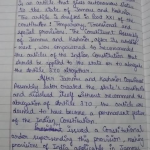 is an article that gives autonomous status
to the state of Jammu and Kashmir.
The article is drafted in Part XXI of the
Constitution: Temporary, Transitional and
special provisions. The Constituent Assembly
of Jammu and Kashmir, after its establish-
ment, was empowered to recommend
the articles of the Indian Constitution that
should be applied to the state or to abrogate
the Article 370 altogether.
After Jammu and Kashmir Constituent
Assembly later created the state's constitution
and dissolved itself without recommending
abrogation of Article 370, the article was
deemed to have become a permanent feature
of the Indian Constitution.
issued a Constitutional
order superseding the
provisions of